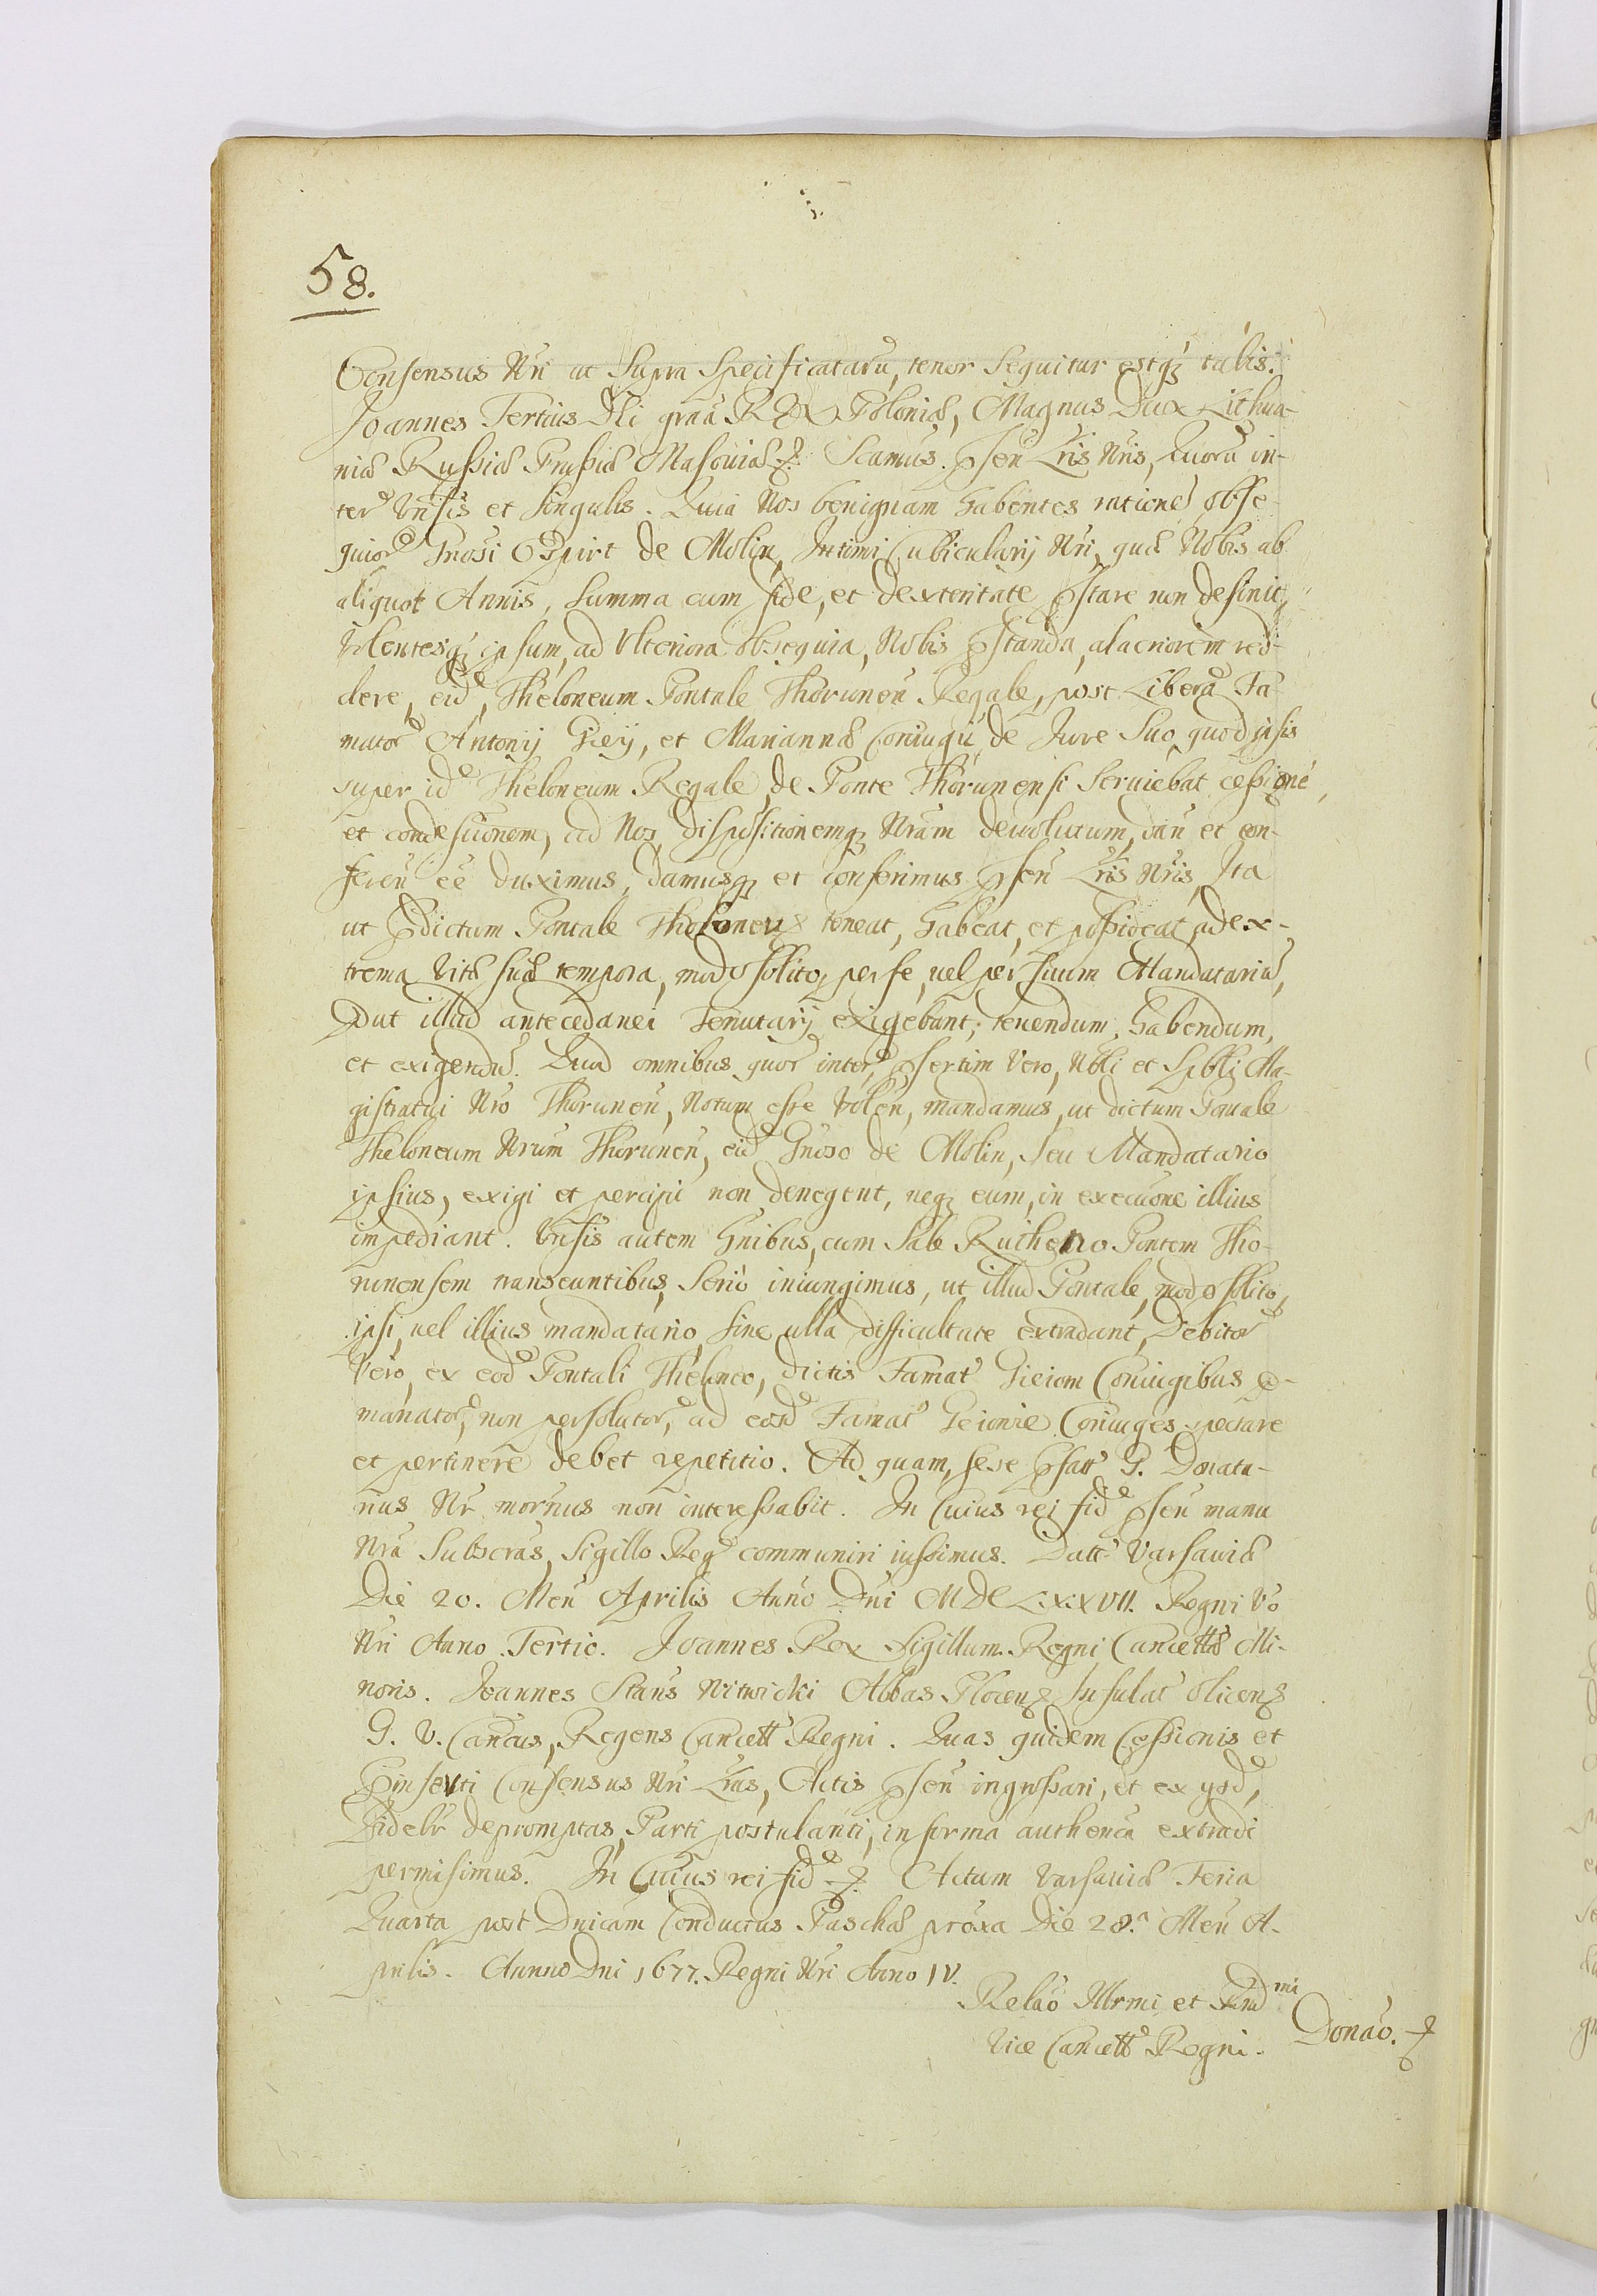 58.
Consensus Nri ut Supra Specificataru, tenor Sequitur estq; talis.
Joannes Tertius Dei graa Rex Poloniæ, Magnus Dux Lithua-
niæ Russiæ Prussiæ Masoviæ Scamus. Psen Lris Nris, Quoru in-
ter Vnsis et Singulis. Quia Nos benignam habentes ratione obse-
quior Gnosi de Molin, Intimi Cubicularij Nri, quæ Nobis ab
aliquot Annis, Summa cum fide, et dexteritate Pstare non desinit,
Volentesq; ipsum, ad Vlteriora obsequia, Nobis Pstanda, alacriorem red-
dere, eid, Theloneum Pontale Thorunen Regale, post Libera Fa-
mator Antonij Giey, et Mariannæ Coniugu de Jure Suo quod ipsis
super id Theloneum Regale de Ponte Thorunensi Serviebat, cessione,
et condescionem, ad Nos, dispositionemq; Nram devolutum, dan et con-
feren ee duximus, damusq; et conferimus Psen Lris Nris, Ita
ut Pdictum Pontale Theloneu teneat, habeat, et possideat, ad ex-
trema Vitæ suæ tempora, modo solito, per se, vel per suum Mandatariu,
Put illud antecedanei Tenutarij exigebant; tenendum, habendum,
et exigendu. Quod omnibus quor inter, Psertim Vero, Nbli et Spbli Ma-
gistratui Nro Thorunen, Notum esse Volen, mandamus, ut dictum Pontale
Theloneum Nrum Thorunen, eid Gnoso de Molin, Seu Mandatario
ipsius, exigi et percipi non denegent, neq; eum, in execuone illius
impediant. Vnsis autem hnibus, cum Sale Rutheno Pontem Tho-
runensem transeuntibus, Serio iniungimus, ut illud Pontale, modo solito,
ipsi, vel illius mandatario, sine ulla difficultate extradant, Debitor
Vero, ex eod Pontali Theloneo, dictis Famat Gieiom Coniugibus P-
manator, non persolutor, ad eosd Famat Geionie Coniuges spectare
et pertinere debet repetitio. Ad quam, sese Psatt G. Donata-
rius Nr mornus non interessabit. In Cuius rei fid Psen manu
Nra Subscras, Sigillo Reg communiri iussimus. Datt Varsaviæ
Die 20. Men Aprilis Anno Dni MDCLXXVII. Regni Vo
Nri Anno Tertio. Joannes Rex Sigillum Regni Cancellæ Mi-
noris. Joannes Stans Witwicki Abbas Plocen Insulat Olicen
G. V. Cancus, Regens Cancell Regni. Quas quidem Cessionis et
Pinserti Consensus Nri Lras, Actis Psen ingrossari, et ex ysd,
Fidelr depromptas, Parti postulanti, in forma authenca extradi
permisimus. In Cuius rei fid Actum Varsaviæ Feria
Quarta post Dnicam Conductus Paschæ proxa Die 28.a Men A-
prilis. Annno Dni 1677. Regni Nri Anno IV.
Relao Illrmi et Rndmi
Vice Cancell Regni.
Donao.